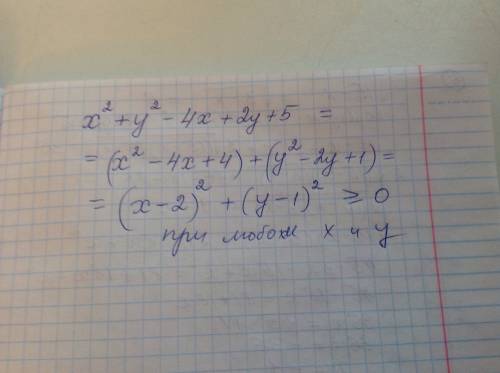 x² + y² - 4x + 2y + 5 =
= (x² - 4x + 4) + (y² - 2y + 1) =
= (x - 2)² + (y - 1)² ≥ 0
при любом x и y